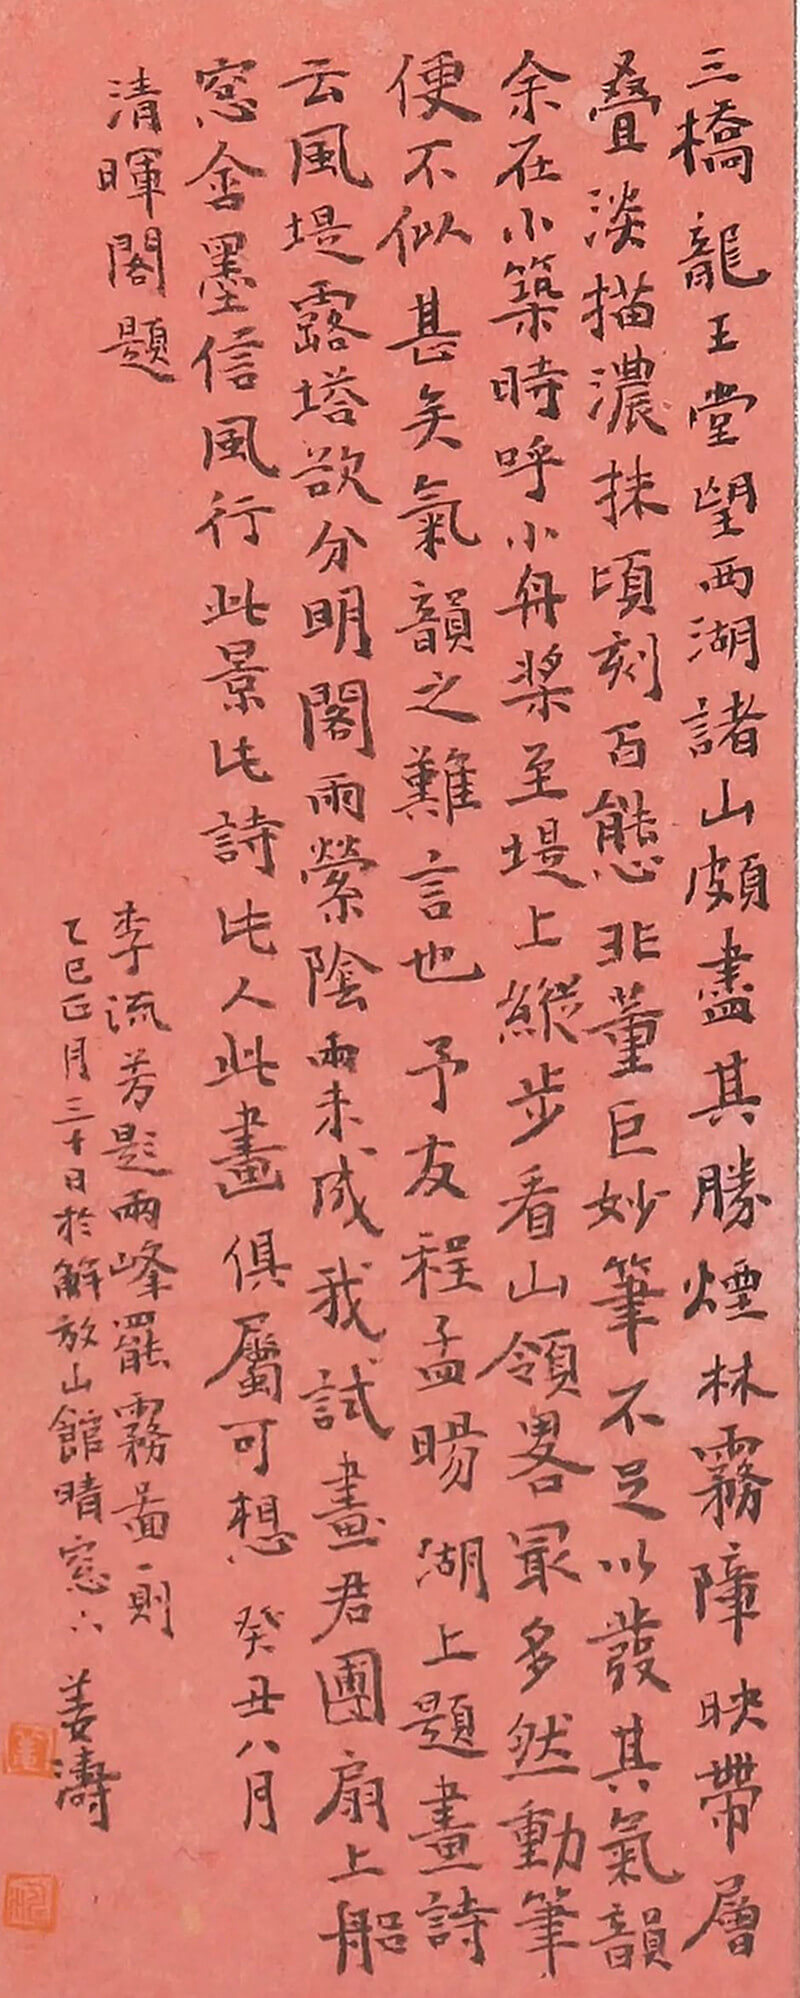 三橋龍王堂望西湖諸山頗盡其勝煙林霧障映帶層
疊淡描濃抹頃刻百態非董巨妙筆不足以發其氣韻
余在小築時呼小舟槳至堤上縱步看山領畧最多然動筆
便不似甚矣氣韻之難言也予友程孟暘湖上題畫詩
云風堤露塔欲分明閣雨縈陰兩未成我試畫君團扇上船
窓含墨信風行此景此詩此人此畫俱屬可想癸丑八月
清暉閣題
李流芳題兩峰罷霧圖一則
乙巳正月三十日於解放山館晴窓下
姜濤